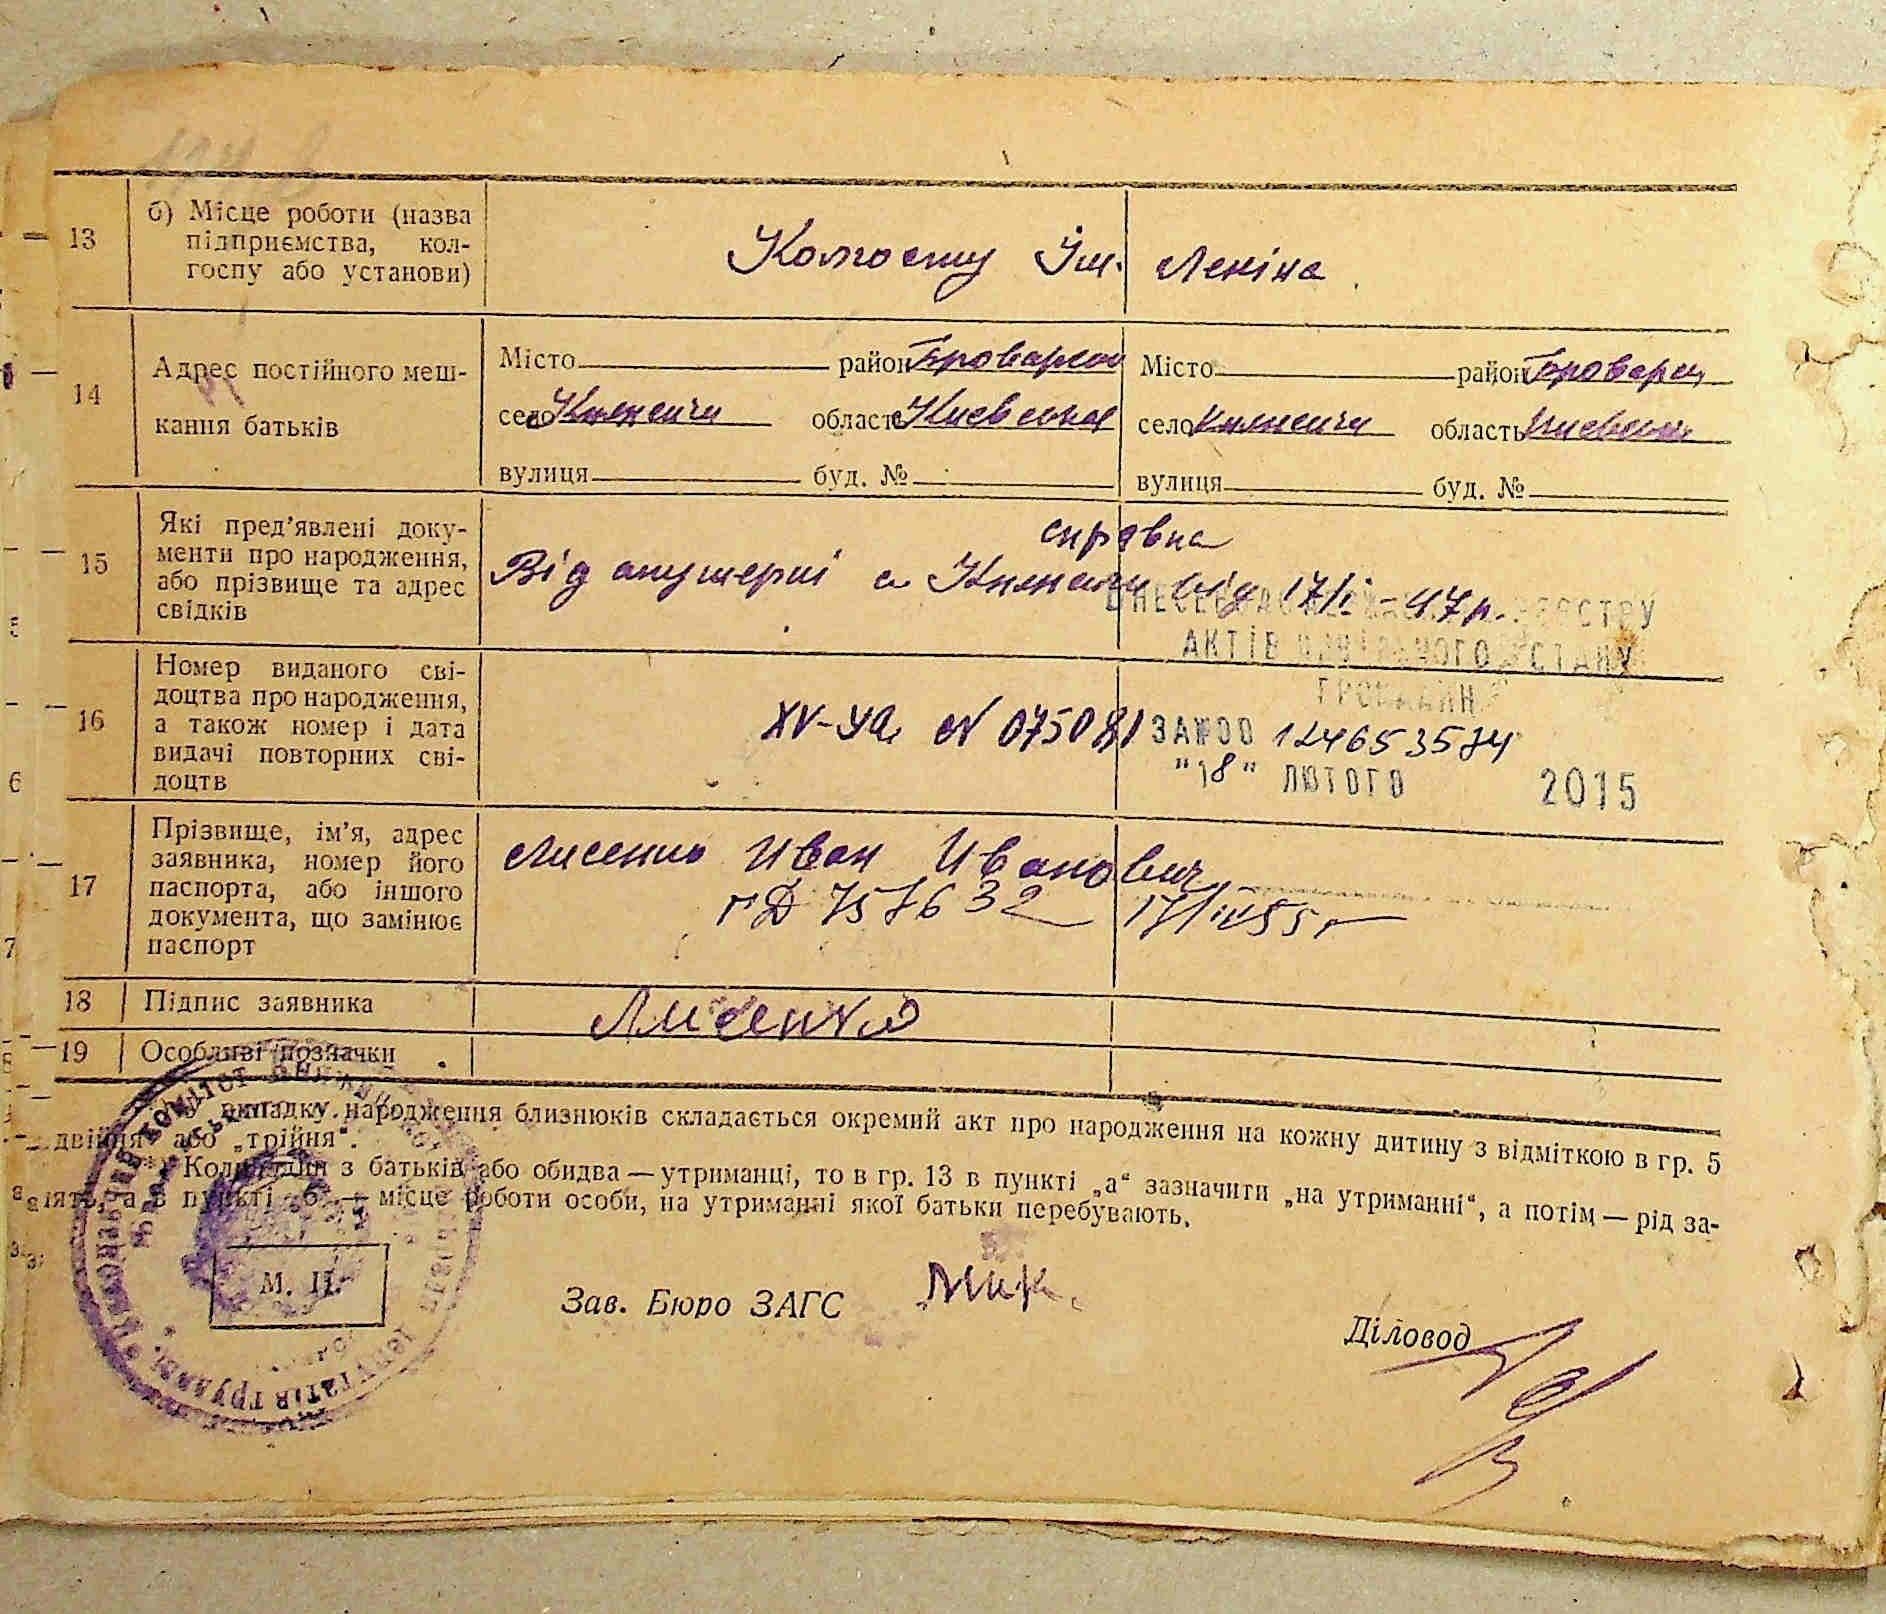 13
б) Місце роботи (назва
підприємства, кол-
госпу або установи)
Колгоспу Ім. Леніна
14
Адрес постійного меш-
кання батьків
Місто район Броварско
село Княжичи область Киевская
вулиця буд. №
Місто район Броварск
село Княжичи область Киевская
вулиця буд. №
15
Які пред’явлені доку-
менти про народження,
або прізвище та адрес
свідків
справка
Від акушерки с Княжичи від 17/I-47р.
РЕЄСТРУ
АКТІВ ЦИВІЛЬНОГО СТАНУ
ГРОМАДЯН
16
Номер виданого сві-
доцтва про народження,
а також номер і дата
видачі повторних сві-
доцтв
XV-УА № 075081
ЗА № 00 124653574
"18" ЛЮТОГО 2015
17
Прізвище, ім’я, адрес
заявника, номер його
паспорта, або іншого
документа, що замінює
паспорт
Лисенко Иван Иванович
757632
18
Підпис заявника
Лисенко
19
Особливі позначки
випадку народження близнюків складається окремий акт про народження на кожну дитину з відміткою в гр. 5
„двійня“ або „трійня“.
Коли один з батьків або обидва — утриманці, то в гр. 13 в пункті „а“ зазначити „на утриманні“, а потім — рід за-
няття, а в пункті „б“ — місце роботи особи, на утриманні якої батьки перебувають.
М. П.
Зав. Бюро ЗАГС
Діловод